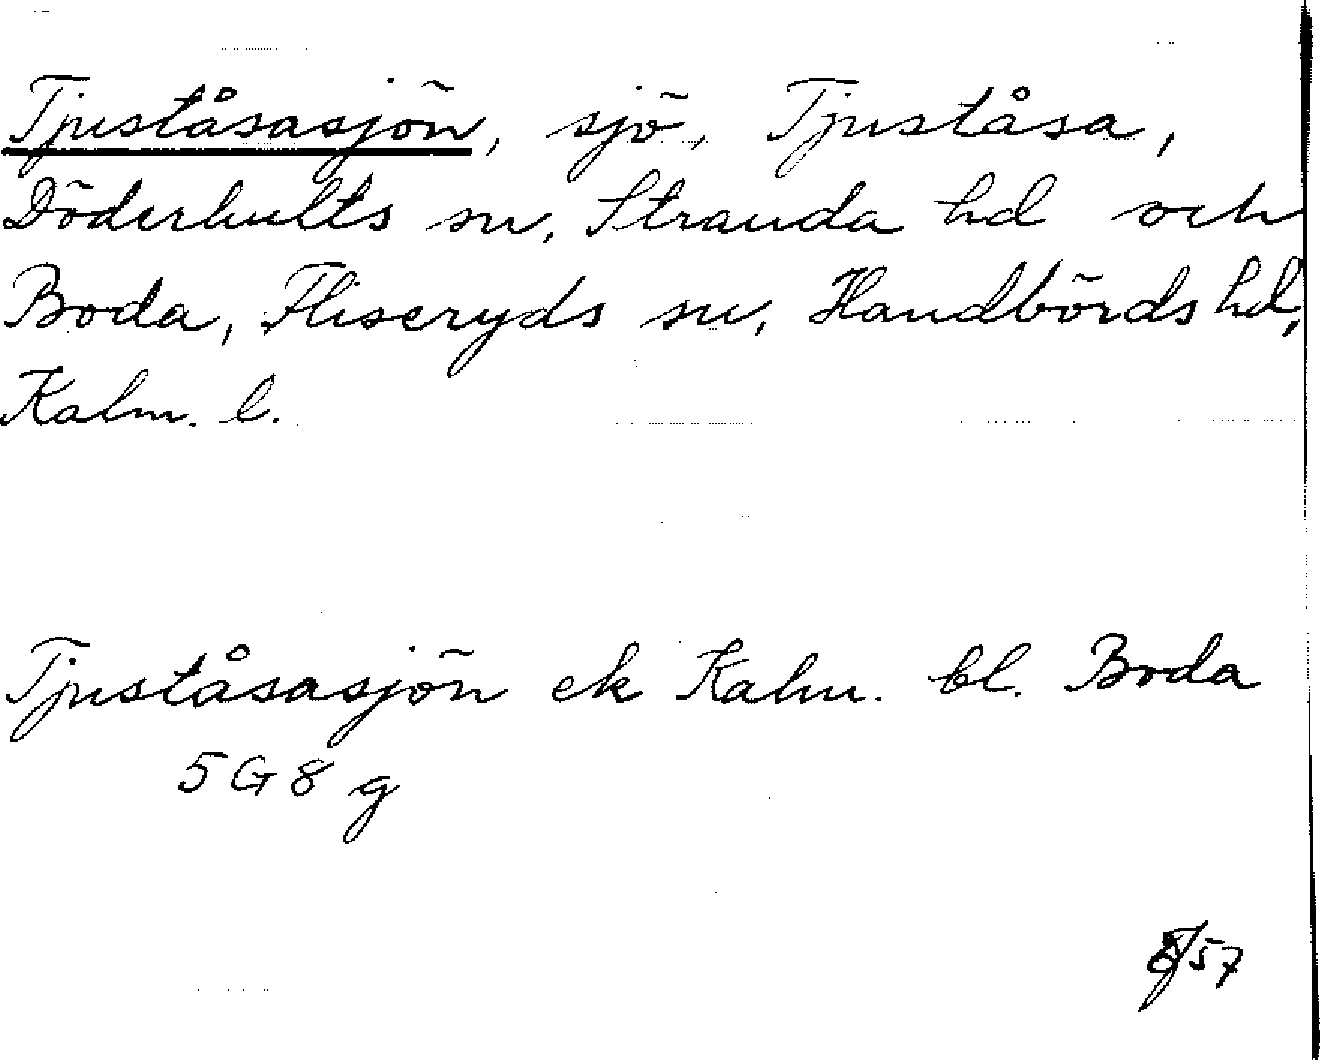 Tjuståsasjön, sjö, Tjuståsa,
Döderhults sn, Stranda hd och
Boda, Fliseryds sn, Handbörds hd,
Kalm. l.
Tjuståsasjön ek Kalm. bl. Boda
5 G 8 g
57